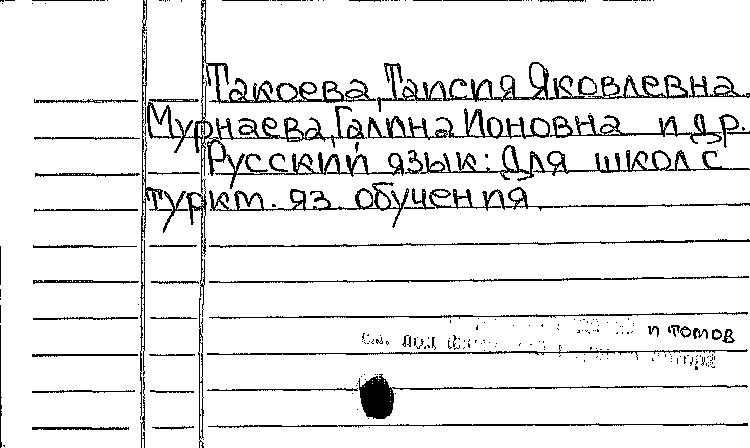 Такоева, Таисия Яковлевна.
Мурнаева, Галина Ионовна и др.
Русский язык: Для школ с
туркм. яз. обучения.
и томов
см. под автора